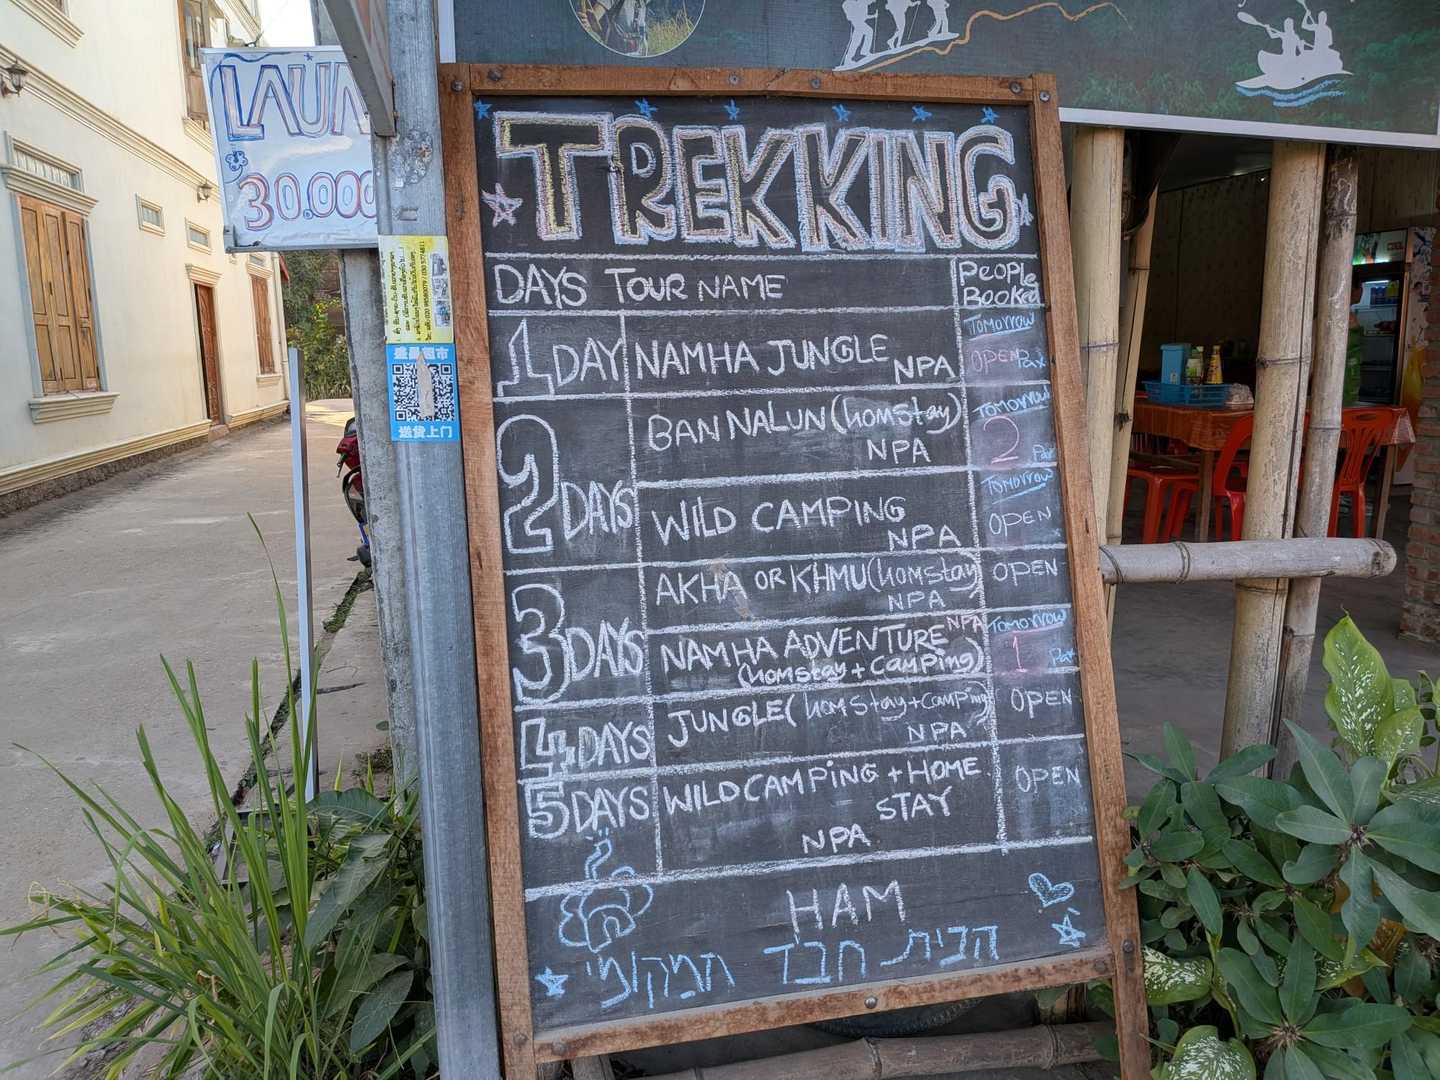 LAUN
30.000
盛昌超市
送货上门
TREKKING
DAYS TOUR NAME PEOPLE BOOKED
1 DAY NAMHA JUNGLE NPA TOMORROW OPEN Pax
2 DAYS BAN NALUN (homstay) NPA TOMORROW 2 Pax
WILD CAMPING NPA TOMORROW OPEN
3 DAYS AKHA OR KHMU (homstay) NPA OPEN
NAMHA ADVENTURE NPA (homstay + camping) TOMORROW 1 Pax
4 DAYS JUNGLE (homstay + camping) NPA OPEN
5 DAYS WILD CAMPING + HOME STAY NPA OPEN
HAM
הבית חבד המקומי